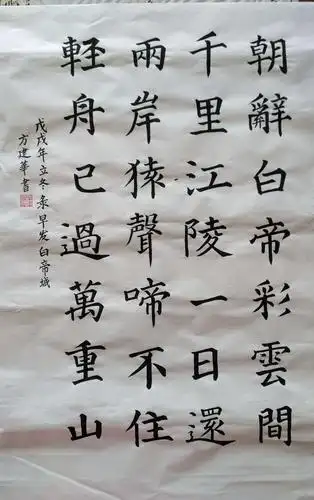 朝辭白帝彩雲間
千里江陵一日還
兩岸猿聲啼不住
軽舟已過萬重山
戊戌年立冬录早发白帝城
方建華書